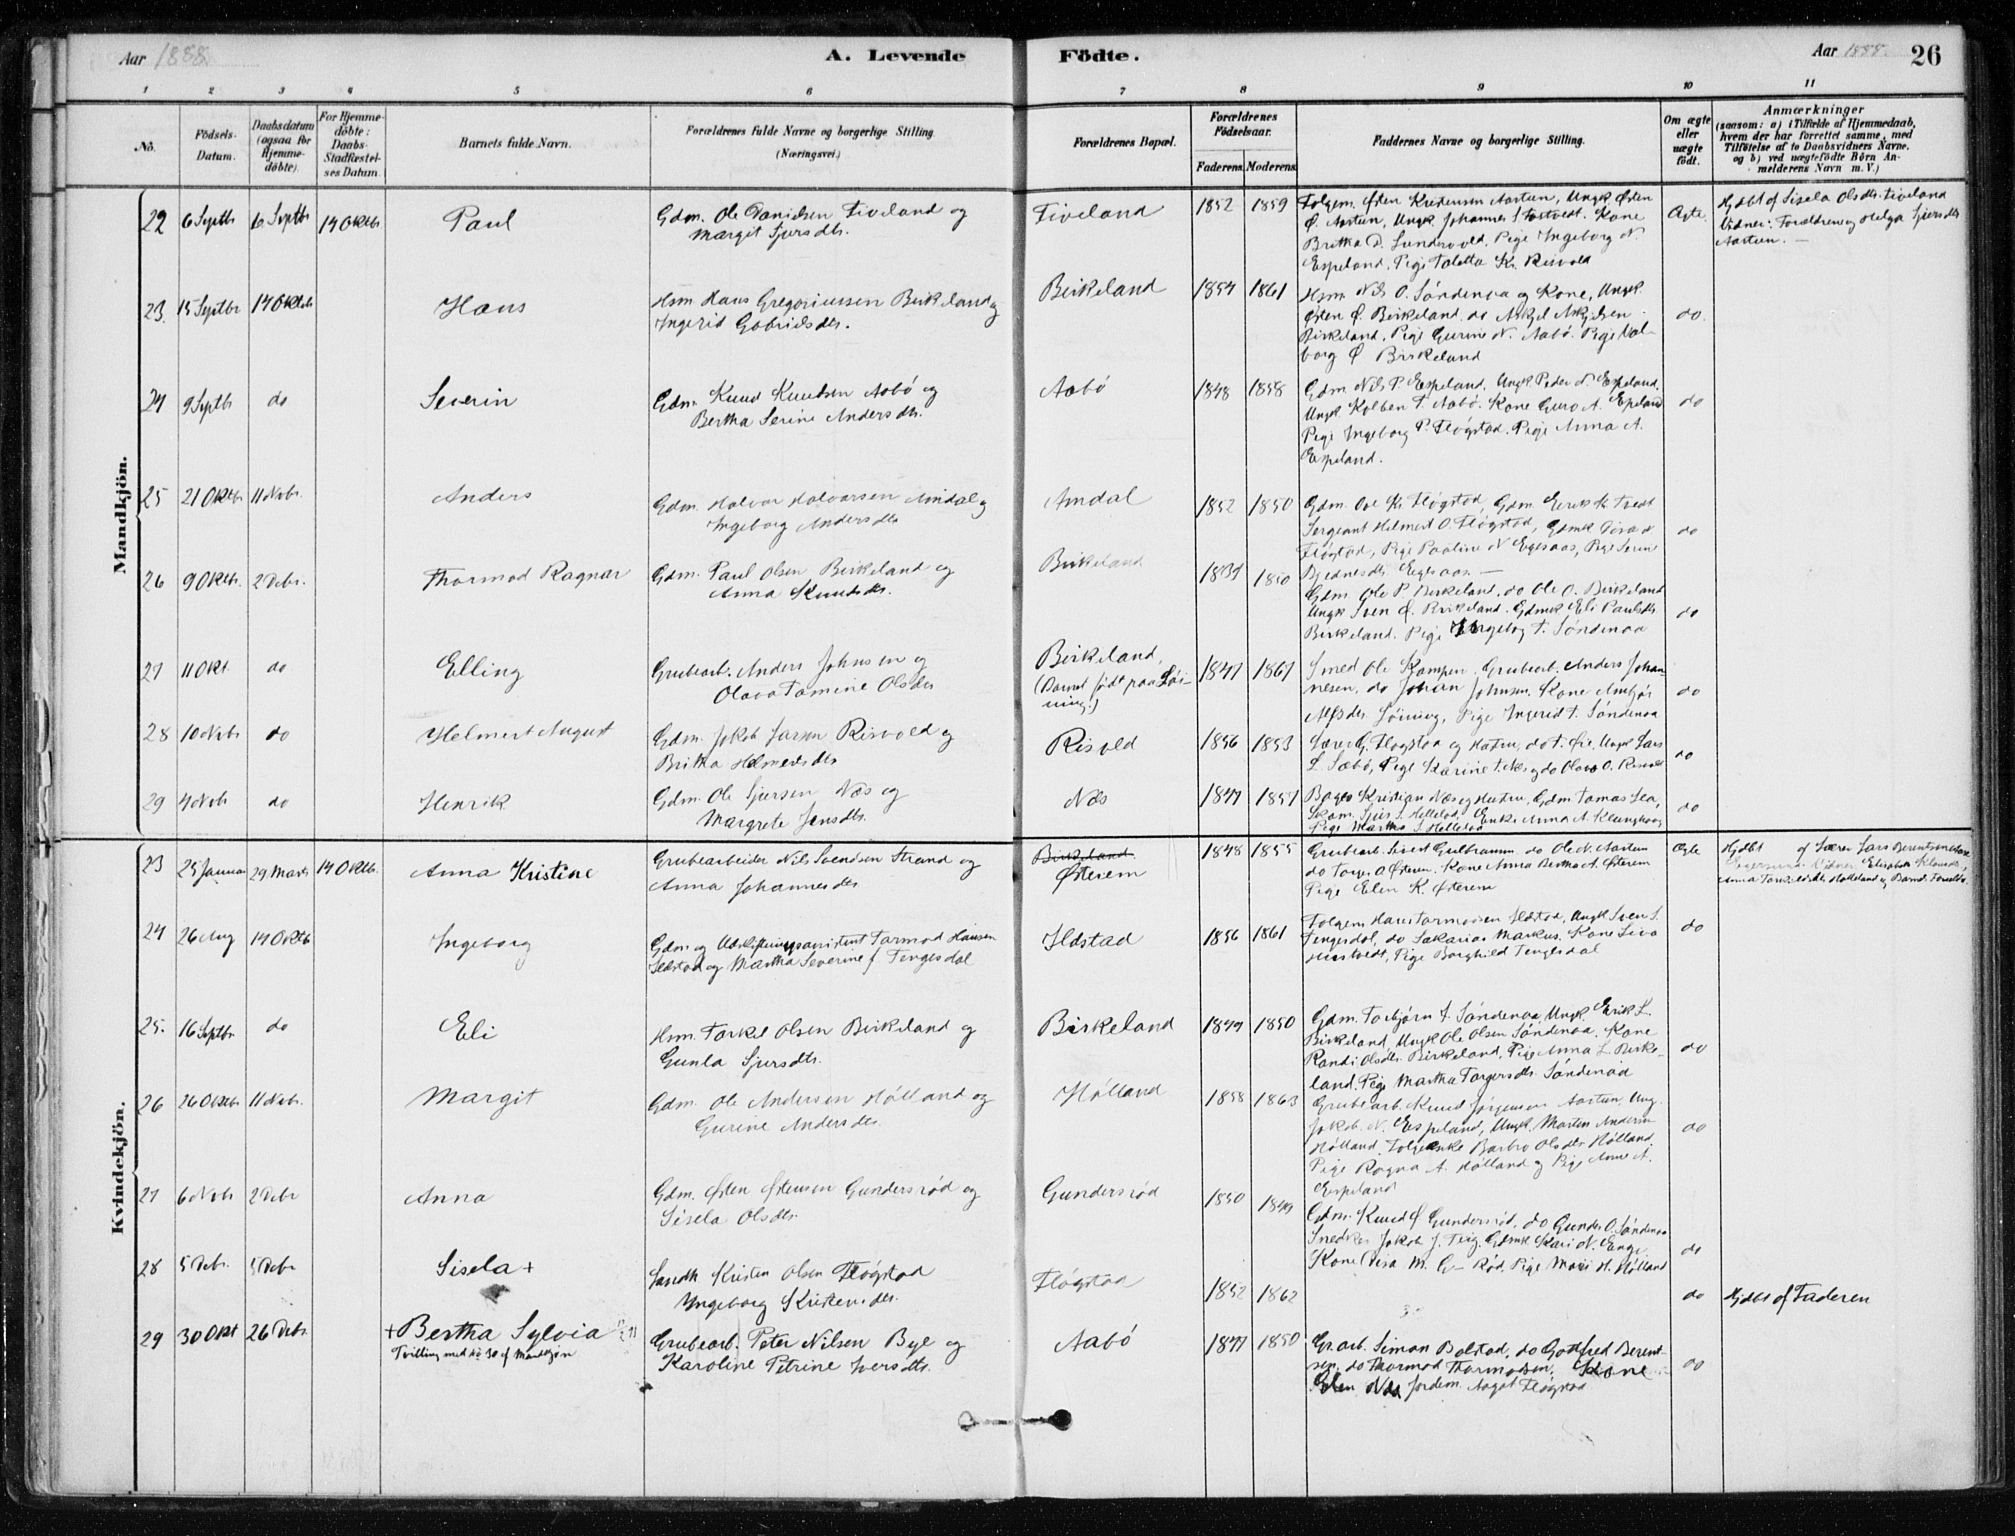 Aar 1888.
A. Levende Födte.
Aar 1888.
26
1 2 3 4 5 6 7 8 9 10 11
No.
Födsels-Datum.
Daabsdatum (ogsaa for Hjemme-döbte).
For Hjemme-döbte: Daabs-Stadfæstel-ses Datum.
Barnets fulde Navn.
Forældrenes fulde Navne og borgerlige Stilling.
(Næringsvei.)
Forældrenes Bopæl.
Forældrenes Födselsaar.
Faderens. Moderens.
Faddernes Navne og borgerlige Stilling.
Om ægte eller uægte födt.
Anmærkninger
(saasom: a) i Tilfælde af Hjemmedaab,
hvem der har forrettet samme, med
Tilföielse af to Daabsvidners Navne,
og b) ved uægtefödte Börn An-
melderens Navn m. V.)
Mandkjön.
22 6 Septbr 6 Septbr 14 Oktbr Paul
Gdm. Ole Danielsen Tiveland og
Margit Sjursdtr.
Tiveland 1852 1859
Folgem. Østen Kristensen Aartun, Ungk Østen
Ø. Aartun, Ungk. Johannes Tostvedt. Kone
Britha D. Sundvold. Pige Ingeborg N.
Espeland. Pige Toletta Kr. Risvold
Ægte.
Hjdbt af Sisela Olsdtr. Tiveland
Vidner: Forældrene og Helga Sjursdtr
Aartun. —
23. 15 Septbr 14 Oktbr Hans
Hsm Hans Gregoriussen Birkeland og
Ingerid Gabrielsdtr.
Birkeland 1854 1861
Hsm Nils O. Söndenaa og Kone, Ungk.
Østen Ø. Birkeland. do Askjel Askjelsen
Birkeland. Pige Gurine N. Aabö. Pige Val-
borg Ø Birkeland
do.
24 9 Septbr do Severin
Gdm. Knud Knudsen Aabö og
Bertha Serine Andersdtr.
Aabö 1848 1858
Gdm. Nils P. Espeland. Ungk Peder N. Espeland.
Ungk Kolben T. Aabö. Kone Guro A. Espeland
Pige Ingeborg P. Flögstad. Pige Anna A.
Espeland.
do
25 21 Oktbr 11 Novbr. Anders
Gdm. Halvor Halvorsen Amdal og
Ingeborg Andersdtr
Amdal 1852 1850
Gdm. Ove K. Flögstad, Gdm. Eirik K Tvedt
Sergeant Helmert O. Flögstad, Gdmk
Flögstad, Pige Pauline N Egesaas, Pige Serine
Egesaas. —
do
26 9 Oktbr. 2 Debr. Thormod Ragnar
Gdm. Paul Olsen Birkeland og
Anna Knudsdtr.
Birkeland 1834 1850
Gdm Ole P. Birkeland, do Ole O. Birkeland
Ungk Sven Ø. Birkeland. Gdmk Eli Paulsdtr
Birkeland. Pige Ingeborg T. Söndenaa
do
27 11 Okt. do Elling
Grubearb. Anders Johnsen og
Olava Tomine Olsdtr
Birkeland,
(Barnet födt paa Löi-
ning!)
1847 1867
Smed Ole Kampen. Grubearb. Anders Johan-
nesen, do Johan Johnsen. Kone
Alfsdtr Löining, Pige Ingerid T. Söndenaa
do
28 10 Novbr do Helmert August
Gdm. Jakob Larsen Risvold og
Britha Helmertsdtr
Risvold 1856 1853
Lærer G. Flögstad og Hustru, do T. Øie, Ungk Lars
L. Sæbö, Pige Karine T. Næs og do Olava O. Risvold
do
29 4 Novbr do Henrik
Gdm. Ole Sjursen Næs og
Margrete Jensdtr.
Næs 1847 1857
Bager Kristian Næs og Hustru, Gdm Tomas Lea,
Skom. Sjur S. Hellestad, Enke Anna A. Klungtvedt
Pige Martha S. Hellestad
do
Kvindekjön.
23 25 Januar 29 Marts 14 Oktbr. Anna Kristine
Grubearbeider Nils Svendsen Strand og
Anna Johannesdtr
Birkeland
Österem
1848 1855
Grubearb. Sivert Gulhaum. do Ole N. Aartun
do Torger O Österem. Kone Anna Bertha A. Österem
Pige Elen K. Österem
Ægte
Hjdbt af Lærer Lars Berentsen
Vidner Elisabeth
Anna Helleland og Barnets Forældre.
24 26 Aug 14 Oktbr Ingeborg
Gdm. og Udskiftningsassistent Tarmod Hansen
Ildstad og Martha Severine f. Tengesdal
Ildstad 1856 1861
Folgem Hans Tarmodsen Ildstad, Ungk Sven S.
Tengesdal, do Sakarias Markus. Kone Siva
Pige Borghild Tengesdal
do
25. 16 Septbr do Eli
Hsm. Torkel Olsen Birkeland og
Gunla Sjursdtr.
Birkeland 1844 1850
Gdm. Torbjörn T. Söndenaa, Ungk Eirik L.
Birkeland, Ungk Ole Olsen Söndenaa. Kone
Randi Olsdtr. Birkeland, Pige Anna L. Birke-
land. Pige Martha Torgersdtr. Söndenaa
do
26 26 Oktbr 11 Novbr. Margit
Gdm. Ole Andersen Hölland og
Gurine Andersdtr.
Hölland 1858 1863
Grubearb. Knud Jörgensen Aartun, Ung.
Jakob N. Espeland, Ungk. Morten Andersen
Hölland, Folgeenke Barbro Olsdtr Hölland.
Pige Ragna A. Hölland og Pige Anne A.
Espeland
do
27 6 Novbr 2 Debr Anna
Gdm. Østen Østensen Gundersröd og
Sisela Olsdtr.
Gundersröd 1850 1849
Gdm. Knud Ø Gundersröd, do Gunder O. Söndenaa
Snedker Jakob J. Teig. Gdmk Kari N. Enge
Kone Lisa M. G— Röd. Pige Mari H. Hölland
do
28 5 Debr. 5 Debr Sisela +
Landh. Kristen Olsen Flögstad
Ingeborg Kristensdtr.
Flögstad 1852 1862
do
Hjdbt af Faderen
29 30 Okt 26 Debr. + Bertha Sylvia
Tvilling med No 30 af Mandkjön
Grubearb. Peter Nilsen Bye og
Karoline Petrine Iversdtr.
Aabö 1847 1850
Gr.arb. Simon Bolstad, do Gotfred Berent-
sen, do Thormod Thormodsen, Kone
Elen Næs Jordem. Aagot Flögstad
do